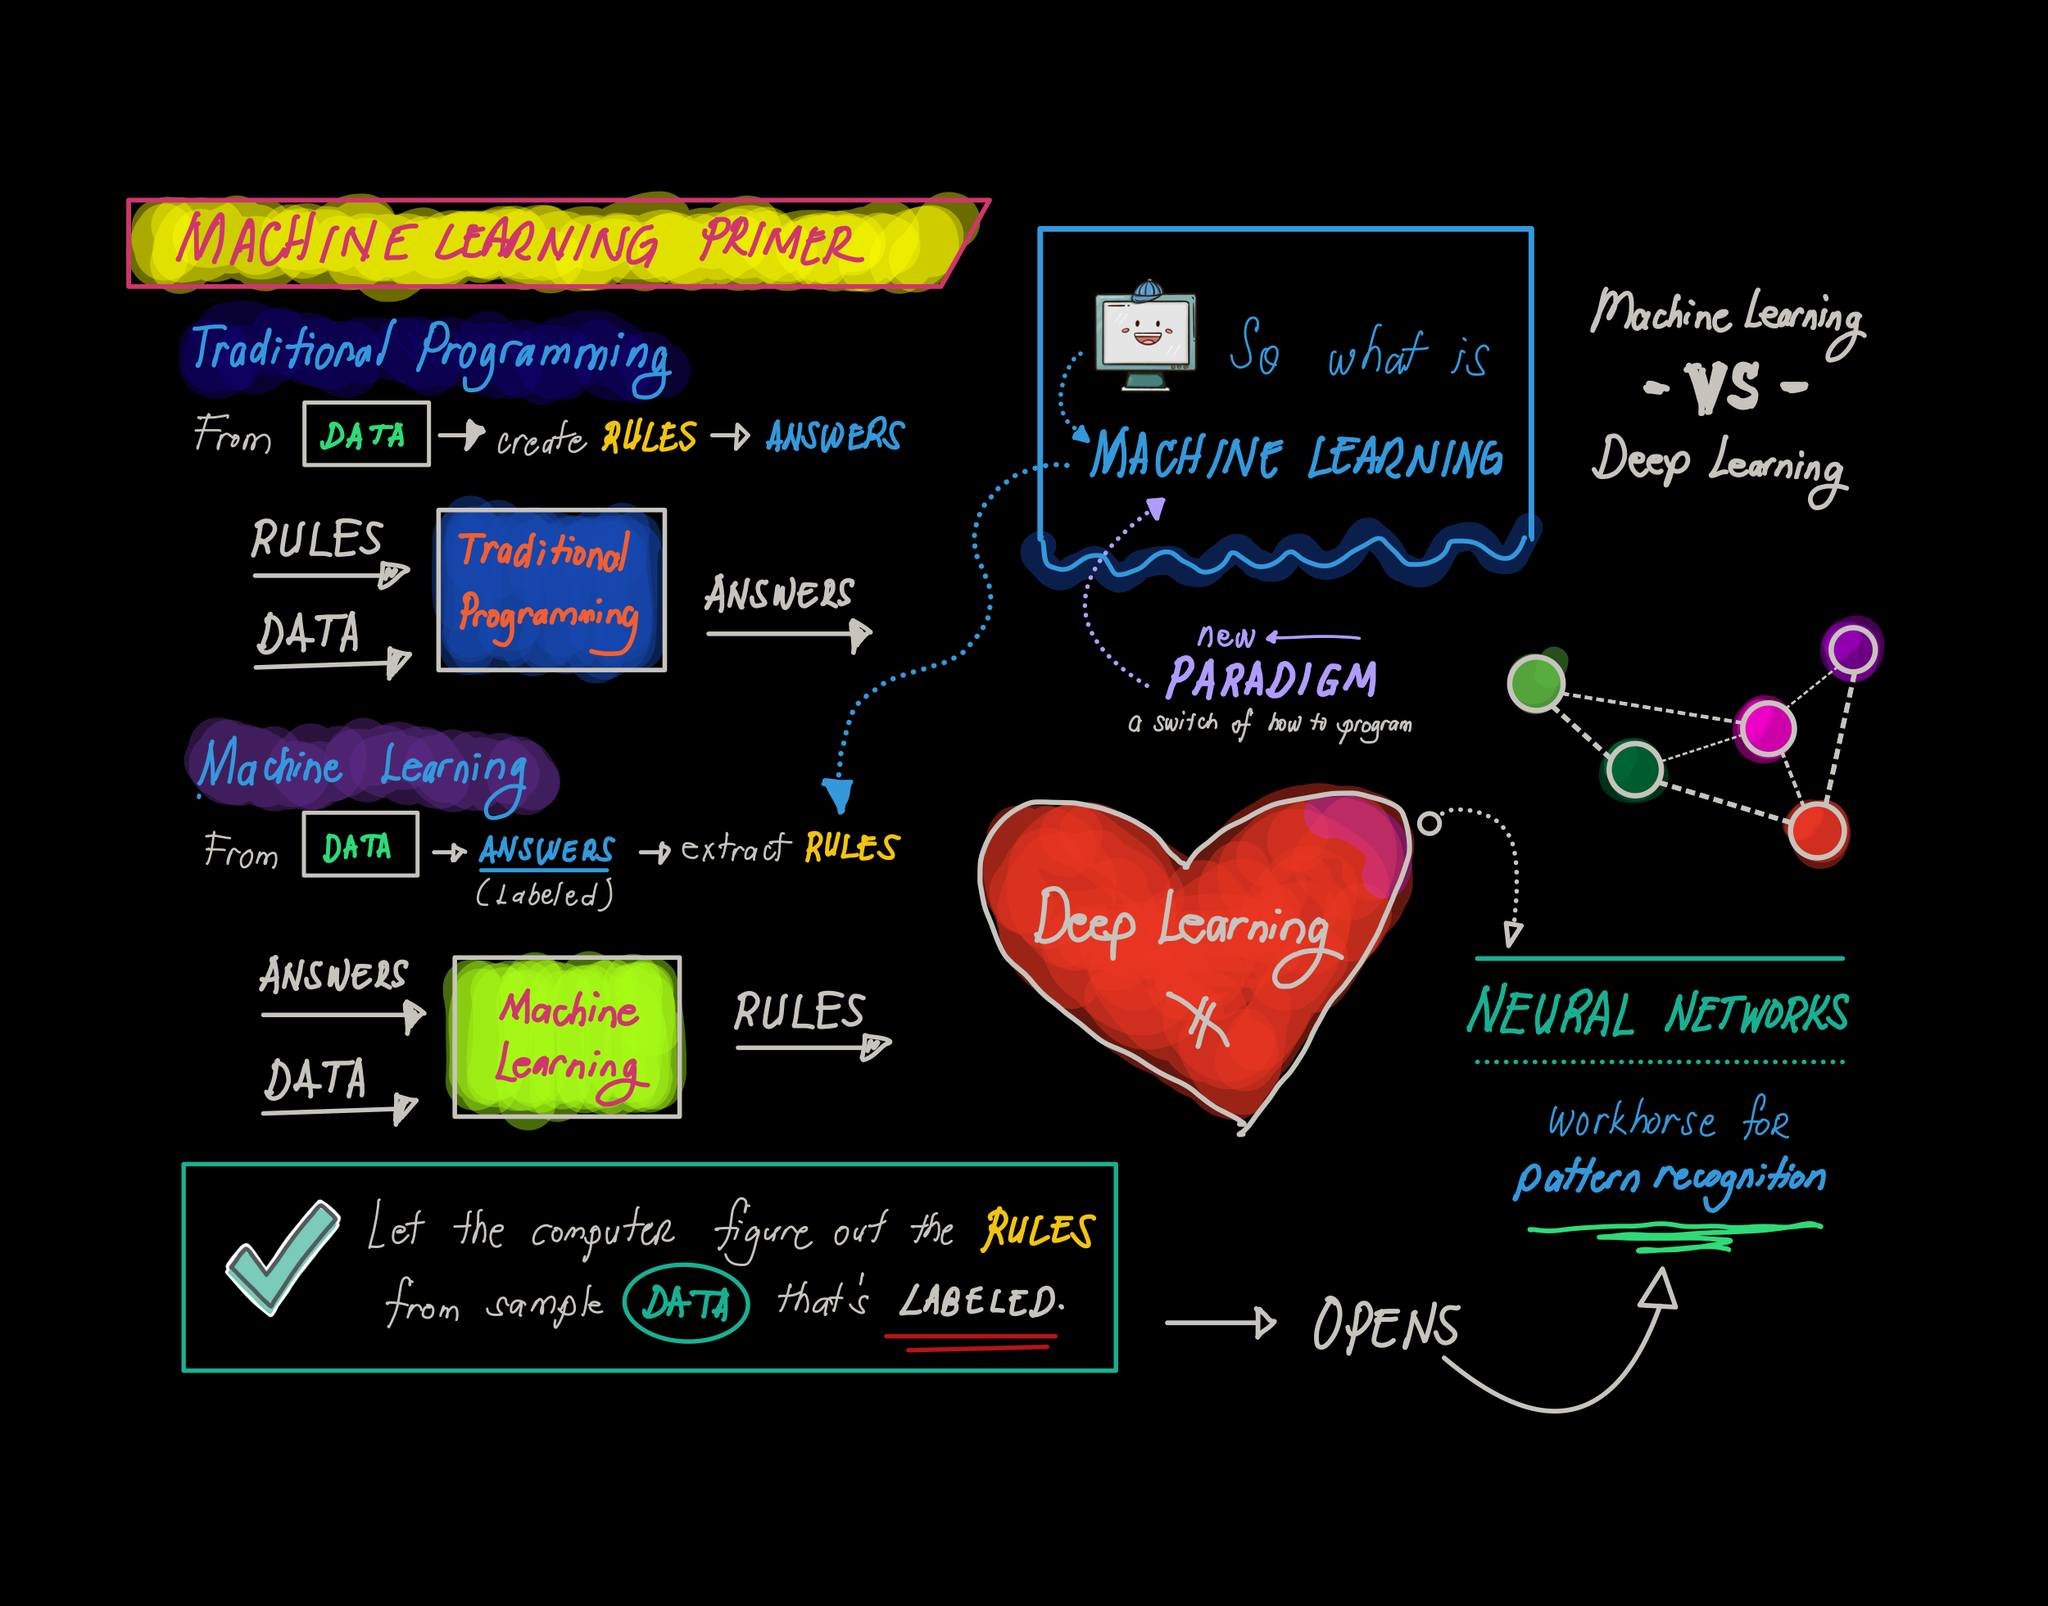 MACHINE LEARNING PRIMER
Traditional Programming
From DATA → create RULES → ANSWERS
RULES
DATA
Traditional
Programming
ANSWERS
Machine Learning
From DATA → ANSWERS → extract RULES
(Labeled)
ANSWERS
DATA
Machine
Learning
RULES
Let the computer figure out the RULES
from sample DATA that's LABELED.
So what is
MACHINE LEARNING
new
PARADIGM
a switch of how to program
Machine Learning
- VS -
Deep Learning
Deep Learning
NEURAL NETWORKS
workhorse for
pattern recognition
OPENS